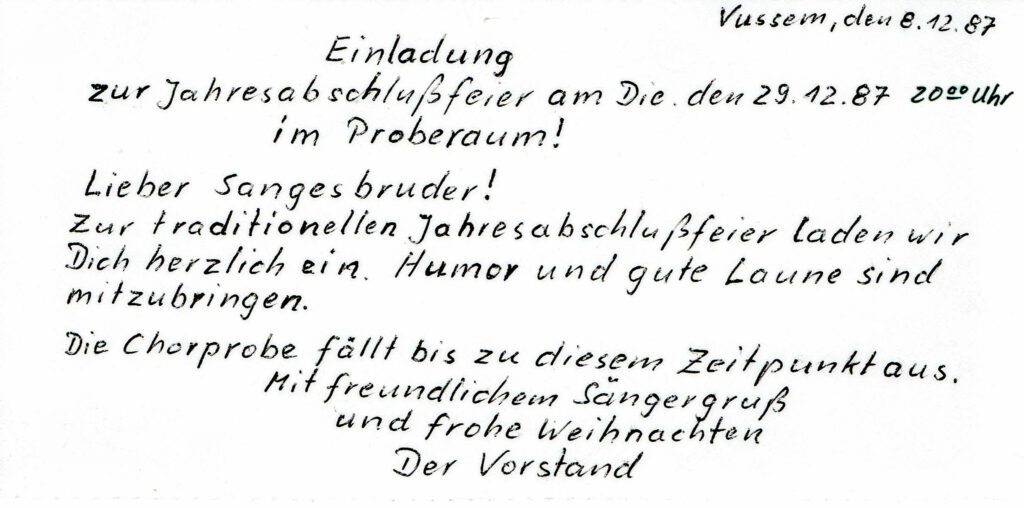 Vussem, den 8.12.87
Einladung
zur Jahresabschlußfeier am Die. den 29.12.87 20⁰⁰ Uhr
im Proberaum!
Lieber Sangesbruder!
Zur traditionellen Jahresabschlußfeier laden wir
Dich herzlich ein. Humor und gute Laune sind
mitzubringen.
Die Chorprobe fällt bis zu diesem Zeitpunkt aus.
Mit freundlichem Sängergruß
und frohe Weihnachten
Der Vorstand